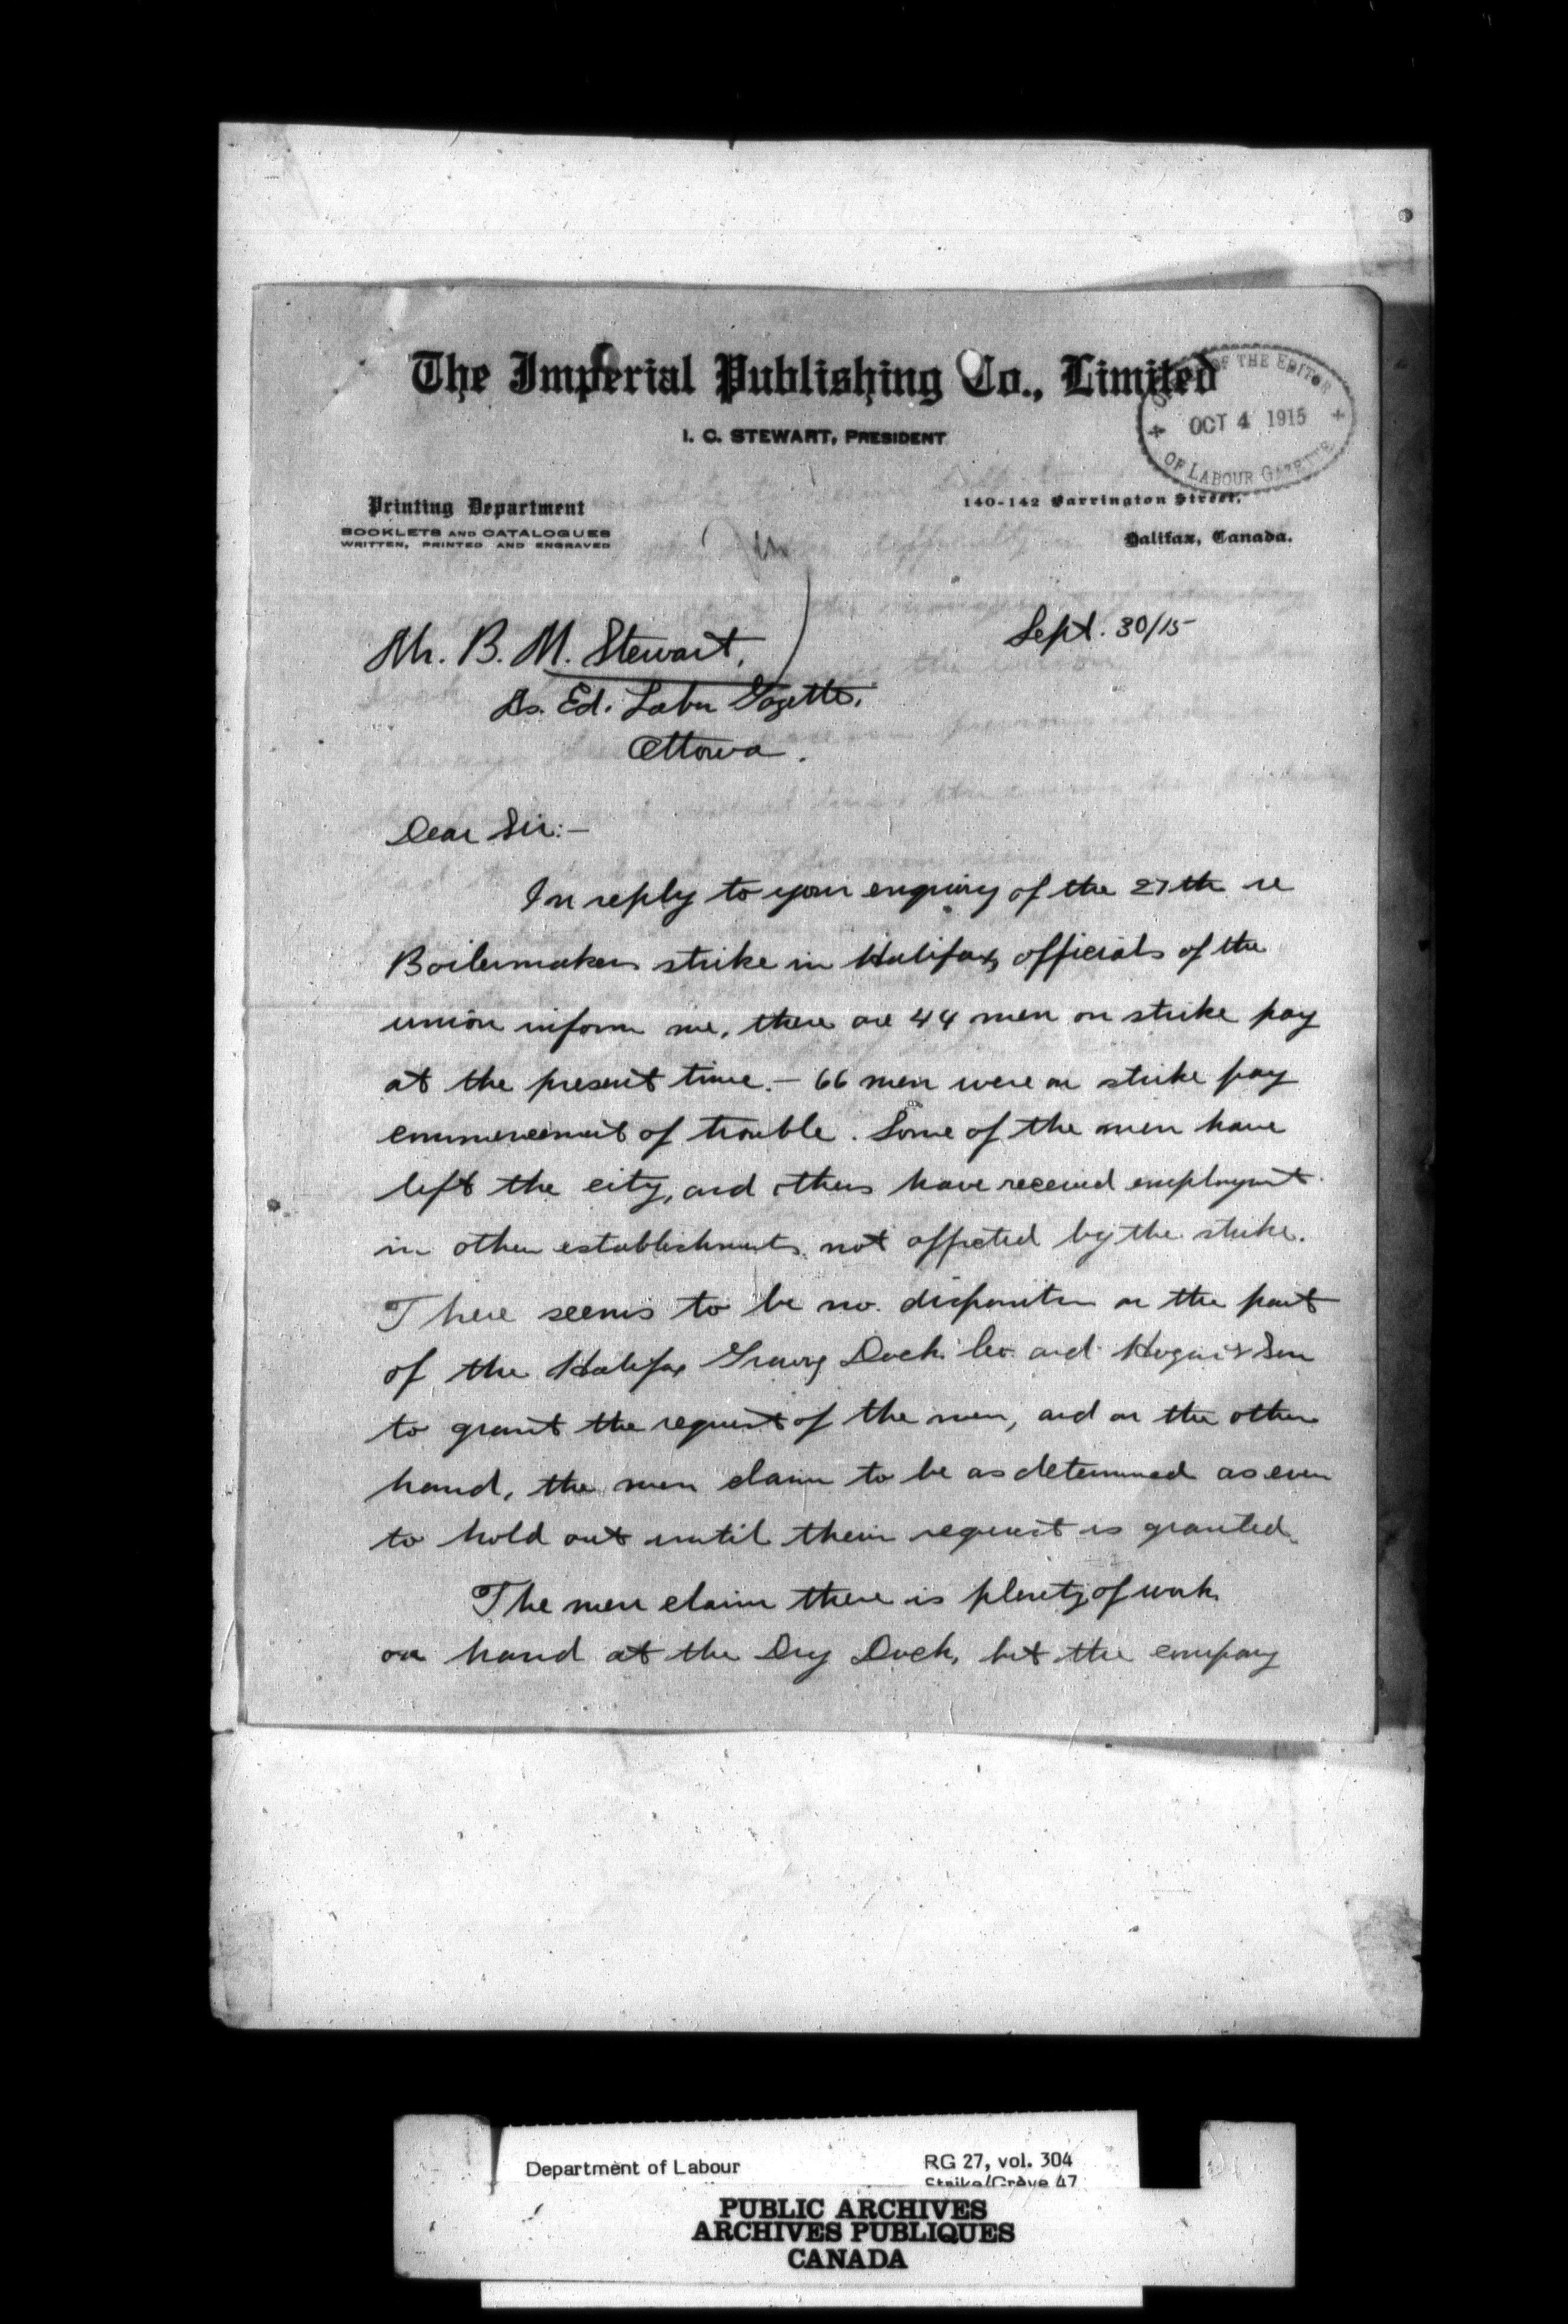 The Imperial Publishing Co., Limited
I. C. STEWART, PRESIDENT
OFFICE OF THE EDITOR
OCT 4 1915
OF LABOUR GAZETTE
Printing Department
BOOKLETS AND CATALOGUES
WRITTEN, PRINTED AND ENGRAVED
140-142 Barrington Street,
Halifax, Canada.
Sept. 30/15
Mr. B. M. Stewart,
As. Ed. Labor Gazette,
Ottowa.
Dear Sir:-
In reply to your enquiry of the 27th re
Boilermakers strike in Halifax, officials of the
union inform me, there are 44 men on strike pay
at the present time. - 66 men were on strike pay
commencement of trouble. Some of the men have
left the city, and others have received employment
in other establishments not affected by the strike.
There seems to be no disposition on the part
of the Halifax Graving Dock Co. and Hogan & Son
to grant the request of the men, and on the other
hand, the men claim to be as determined as ever
to hold out until their request is granted.
The men claim there is plenty of work
on hand at the Dry Dock, but the company
Department of Labour
RG 27, vol. 304
Strike/Grève 47
PUBLIC ARCHIVES
ARCHIVES PUBLIQUES
CANADA